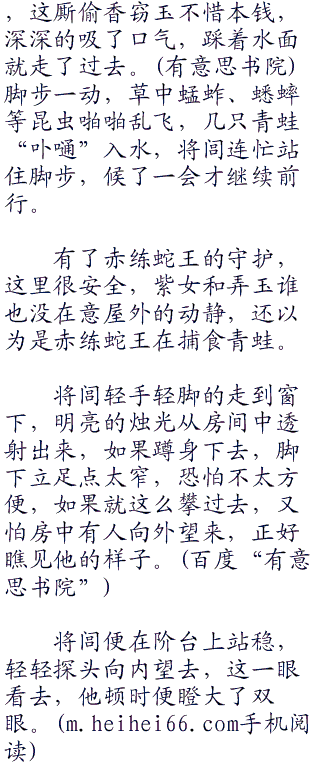 ，这厮偷香窃玉不惜本钱，
深深的吸了口气，踩着水面
就走了过去。(有意思书院)
脚步一动，草中蜢蚱、蟋蟀
等昆虫啪啪乱飞，几只青蛙
“卟嗵”入水，将闾连忙站
住脚步，候了一会才继续前
行。
有了赤练蛇王的守护，
这里很安全，紫女和弄玉谁
也没在意屋外的动静，还以
为是赤练蛇王在捕食青蛙。
将闾轻手轻脚的走到窗
下，明亮的烛光从房间中透
射出来，如果蹲身下去，脚
下立足点太窄，恐怕不太方
便，如果就这么攀过去，又
怕房中有人向外望来，正好
瞧见他的样子。(百度“有意
思书院”)
将闾便在阶台上站稳，
轻轻探头向内望去，这一眼
看去，他顿时便瞪大了双
眼。(m.heihei66.com手机阅
读)